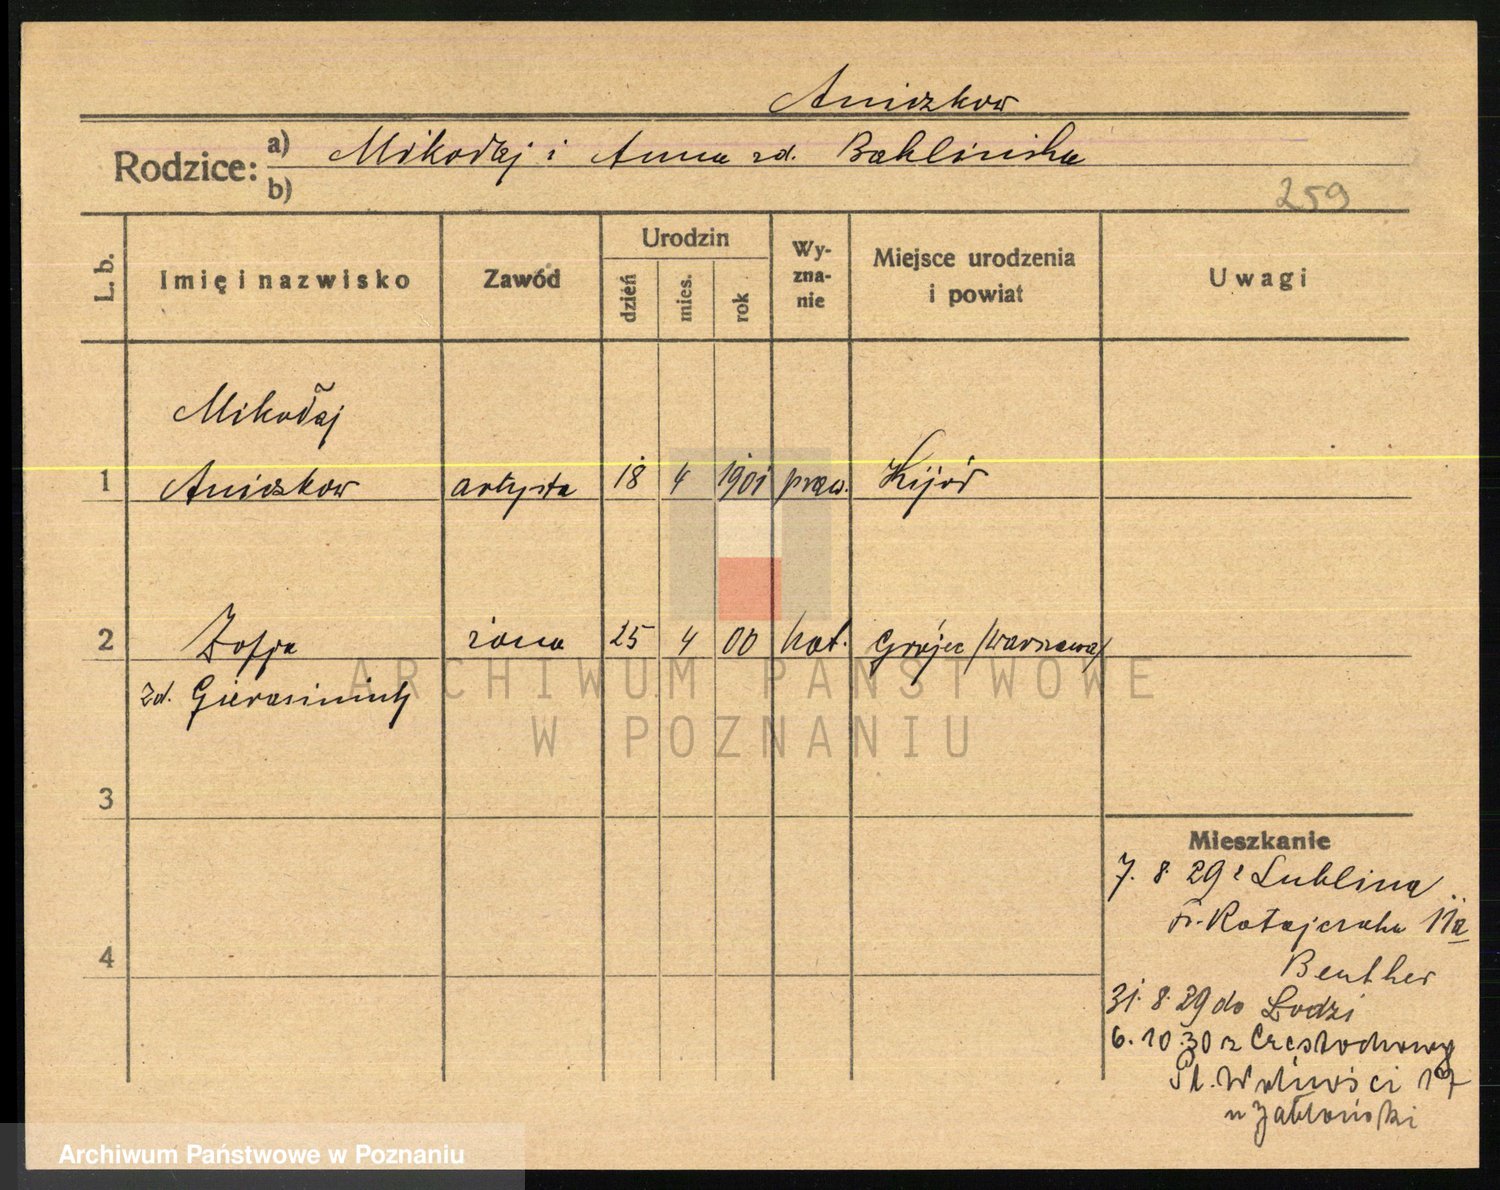 Aniczkow
Rodzice: a) Mikołaj i Anna zd. Baklińska
b)
259
L. b. Imię i nazwisko Zawód Urodzin dzień mies. rok Wyznanie Miejsce urodzenia i powiat Uwagi
Mikołaj
1 Aniczkow artysta 18 4 1901 praw. Kijów
2 Zofja żona 25 4 00 kat. Grójec /Warszawa/
zd.
3
4
Mieszkanie
7. 8. 29 z Lublina
Fr. Ratajczaka 11a
Beuther
31. 8. 29 do Łodzi
6. 10. 30 z Częstochowy
Pl. Wolności
u Jabłoński
ARCHIWUM PAŃSTWOWE
W POZNANIU
Archiwum Państwowe w Poznaniu